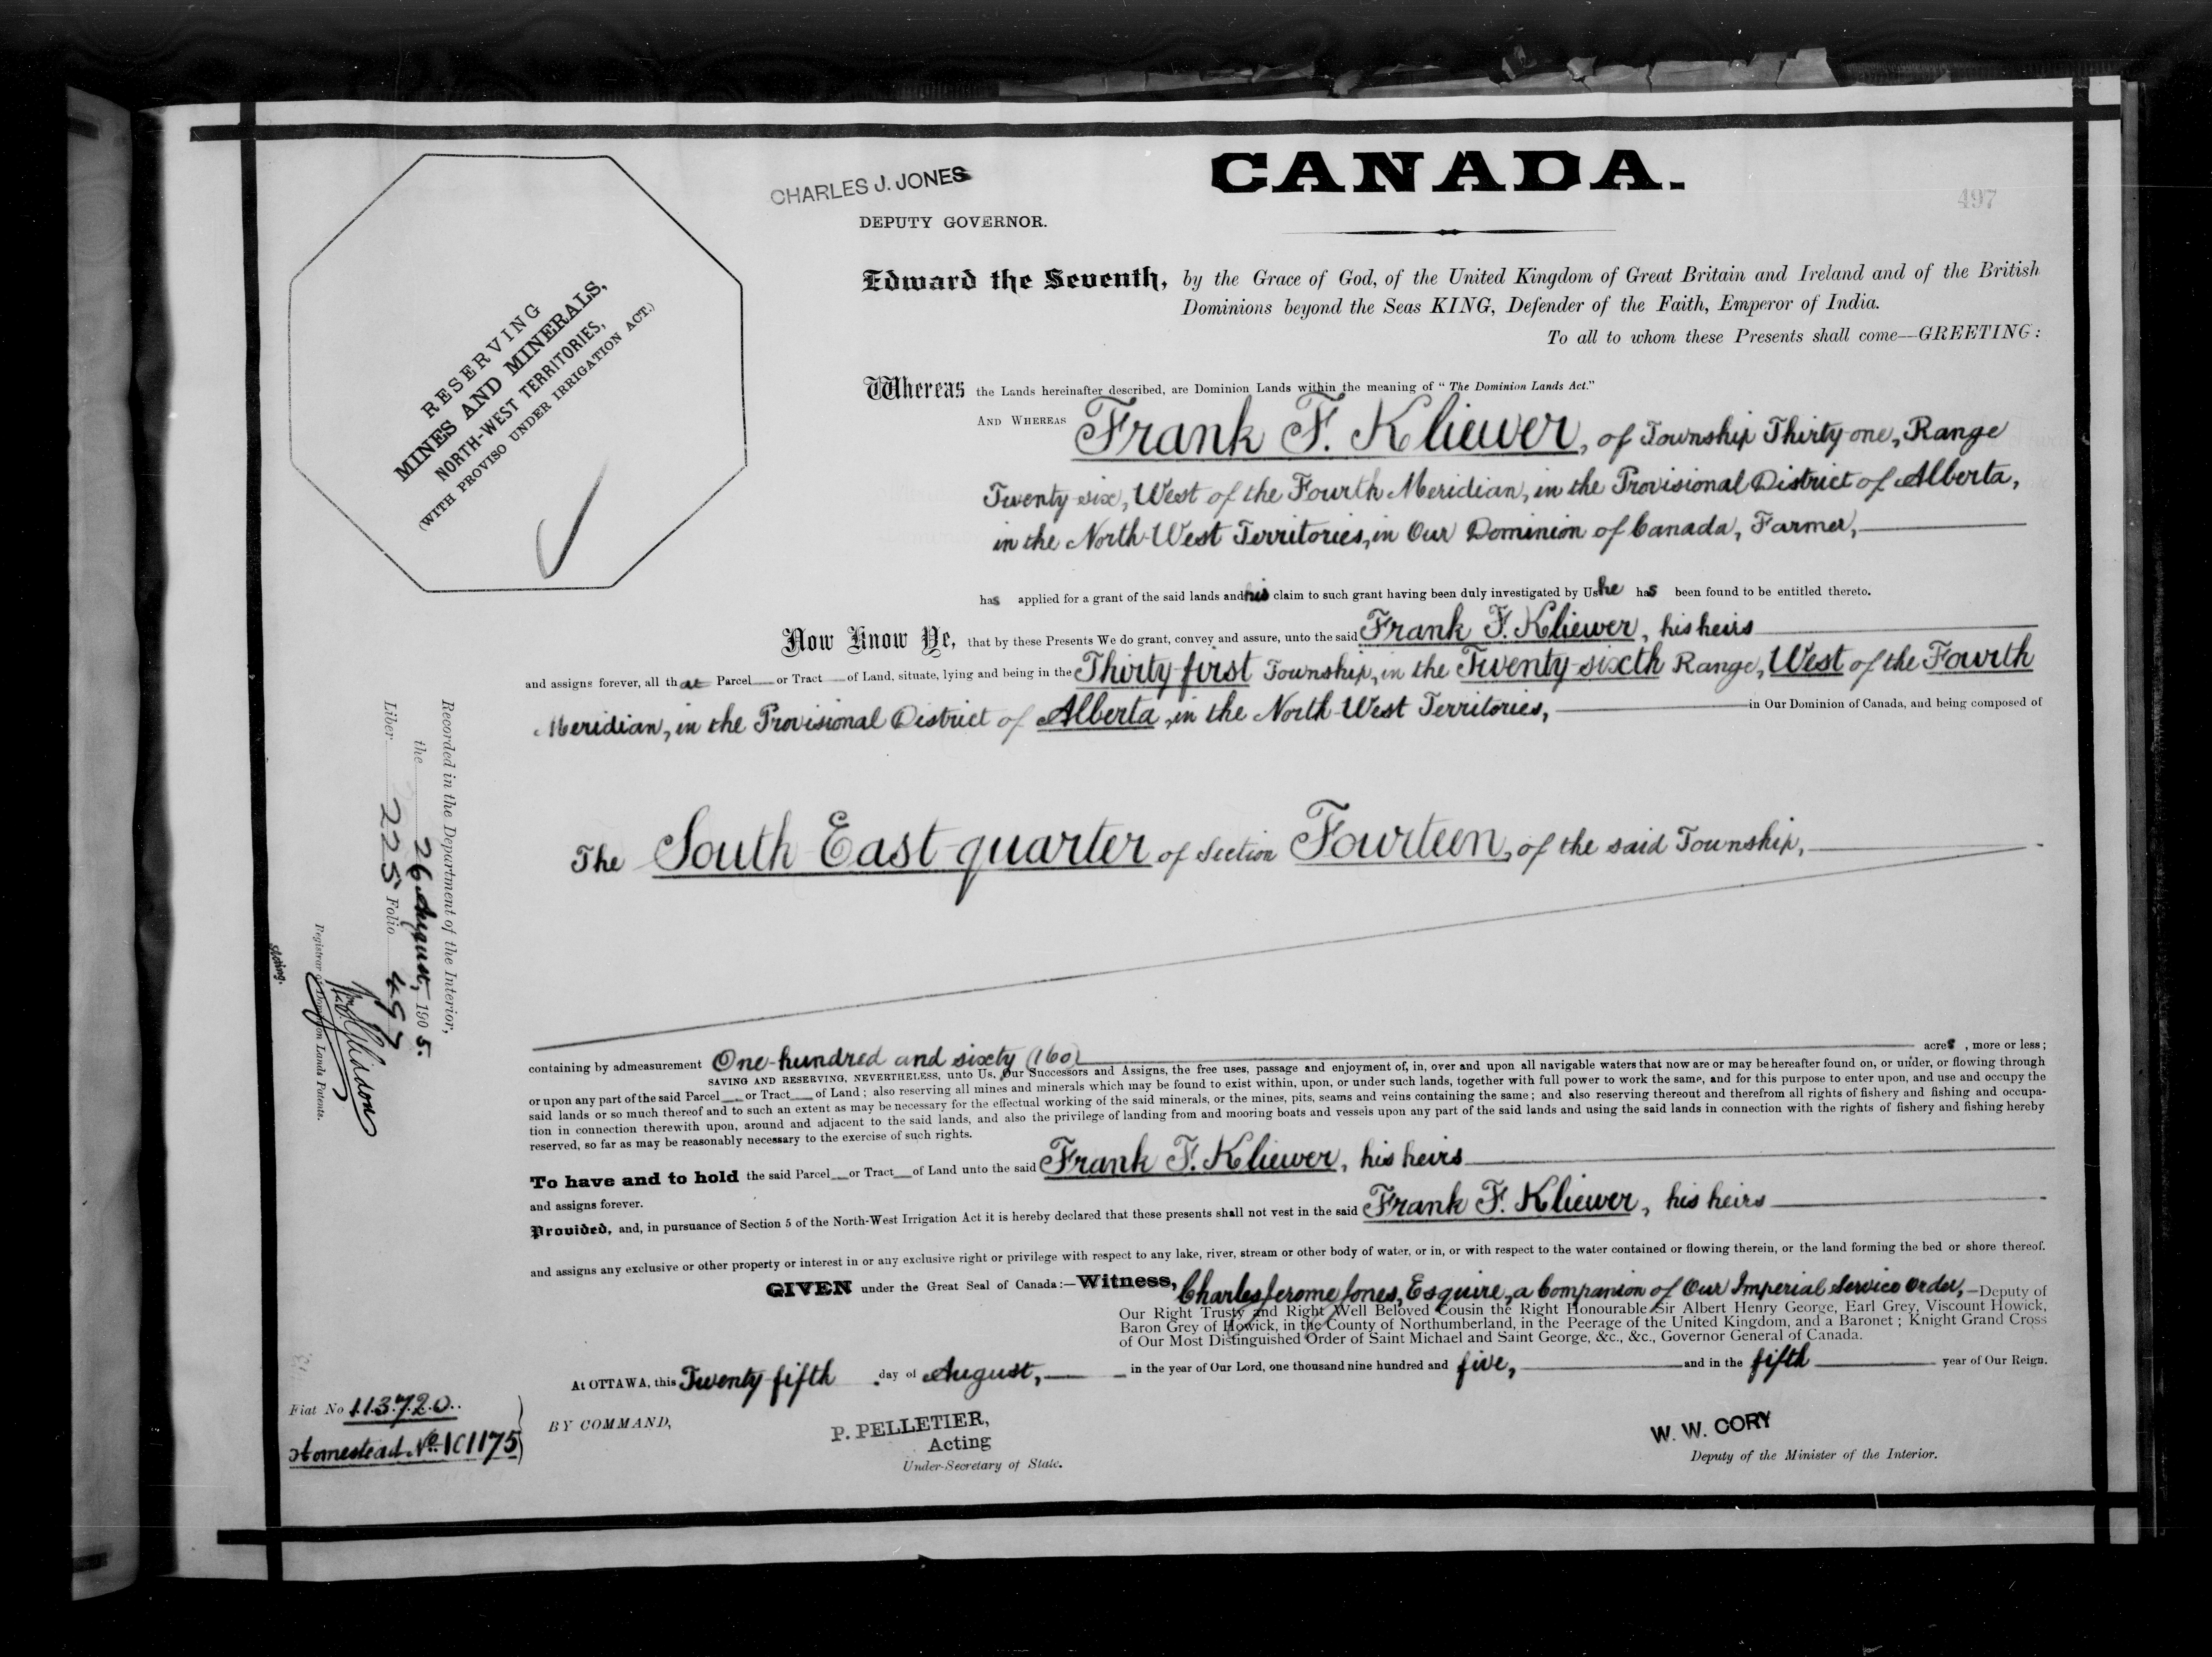 CANADA.
CHARLES J. JONES
DEPUTY GOVERNOR.
497
RESERVING
MINES AND MINERALS,
NORTH-WEST TERRITORIES,
(WITH PROVISO UNDER IRRIGATION ACT.)
Edward the Seventh, by the Grace of God, of the United Kingdom of Great Britain and Ireland and of the British
Dominions beyond the Seas KING, Defender of the Faith, Emperor of India.
To all to whom these Presents shall come—GREETING:
Whereas the Lands hereinafter described, are Dominion Lands within the meaning of "The Dominion Lands Act."
AND WHEREAS Frank F. Kliewer, of Township Thirty-one, Range
Twenty-six, West of the Fourth Meridian, in the Provisional District of Alberta,
in the North-West Territories, in Our Dominion of Canada, Farmer,
has applied for a grant of the said lands and his claim to such grant having been duly investigated by Us he has been found to be entitled thereto.
Now Know Ye, that by these Presents We do grant, convey and assure, unto the said Frank F. Kliewer, his heirs
and assigns forever, all that Parcel or Tract of Land, situate, lying and being in the Thirty-first Township, in the Twenty-sixth Range, West of the Fourth
Meridian, in the Provisional District of Alberta, in the North-West Territories, in Our Dominion of Canada, and being composed of
The South East quarter of Section Fourteen, of the said Township,
containing by admeasurement One hundred and sixty (160) acres, more or less;
SAVING AND RESERVING, NEVERTHELESS, unto Us, Our Successors and Assigns, the free uses, passage and enjoyment of, in, over and upon all navigable waters that now are or may be hereafter found on, or under, or flowing through
or upon any part of the said Parcel or Tract of Land; also reserving all mines and minerals which may be found to exist within, upon, or under such lands, together with full power to work the same, and for this purpose to enter upon, and use and occupy the
said lands or so much thereof and to such an extent as may be necessary for the effectual working of the said minerals, or the mines, pits, seams and veins containing the same; and also reserving thereout and therefrom all rights of fishery and fishing and occupa-
tion in connection therewith upon, around and adjacent to the said lands, and also the privilege of landing from and mooring boats and vessels upon any part of the said lands and using the said lands in connection with the rights of fishery and fishing hereby
reserved, so far as may be reasonably necessary to the exercise of such rights.
To have and to hold the said Parcel or Tract of Land unto the said Frank F. Kliewer, his heirs
and assigns forever.
Provided, and, in pursuance of Section 5 of the North-West Irrigation Act it is hereby declared that these presents shall not vest in the said Frank F. Kliewer, his heirs
and assigns any exclusive or other property or interest in or any exclusive right or privilege with respect to any lake, river, stream or other body of water, or in, or with respect to the water contained or flowing therein, or the land forming the bed or shore thereof.
GIVEN under the Great Seal of Canada:—Witness, Charles Jerome Jones, Esquire, a Companion of Our Imperial Service Order,—Deputy of
Our Right Trusty and Right Well Beloved Cousin the Right Honourable Sir Albert Henry George, Earl Grey, Viscount Howick,
Baron Grey of Howick, in the County of Northumberland, in the Peerage of the United Kingdom, and a Baronet; Knight Grand Cross
of Our Most Distinguished Order of Saint Michael and Saint George, &c., &c., Governor General of Canada.
At OTTAWA, this Twenty fifth day of August, in the year of Our Lord, one thousand nine hundred and five, and in the fifth year of Our Reign.
BY COMMAND,
P. PELLETIER,
Acting
Under-Secretary of State.
W. W. CORY
Deputy of the Minister of the Interior.
Fiat No 113720
Homestead No 101175
Recorded in the Department of the Interior,
the 26 August, 1905.
Liber 225 Folio 497
Registrar of Dominion Lands Patents.
Acting.